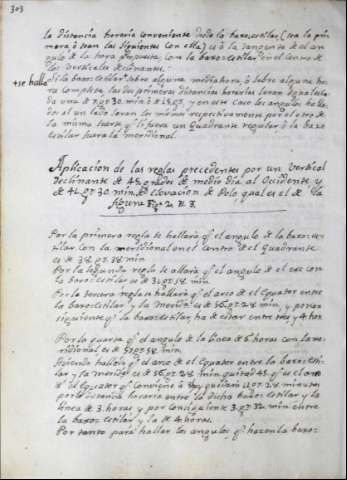 303
la distancia horaria conveniente desde la baxoestilar (sea la pri-
mera, ò sean las siguientes con ella) es à la tangente de el an
gulo de la hora propuesta con la baxoestilar en el centro de
los verticales declinantes.
+se halla
Si la baxoestilar sobre alguna mediahora, ò sobre alguna ho
ra completa, las dos primeras distancias horarias seran iguales
una de 7.gr.30.min ò de 15.gr. y en este caso los angulos halla
dos al un lado seran los mismos respectivamente por el otro de
la misma suerte q. si fuera un quadrante regular, ò la baxo
estilar fuera la meridional.
Aplicacion de las reglas precedentes por un vertical
declinante de 45 grados de medio dia al Occidente y
de 41.gr.30.min de elevacion de Polo qual es el de la
figura
Por la primera regla se hallarà q.l el angulo de la baxoes
tilar con la meridional en el centro de el Quadrante
es de 38.gr.
Por la segunda regla se allarà q.l el angulo de el exe con
la baxoestilar es de 31.gr.58.min
Por la tercera regla se hallarà q.l el arco de el Equator entre
la baxoestilar y la merid.l es de 56.gr.28.min, y por con
siguiente q.l la baxoestilar, ha de estar entre tres y 4 hor.
Por la quarta q.l el angulo de la linea de 6 horas con la me
ridional es de 57.gr.58.min
Aviendo hallado q.l el arco de el Equator entre la baxoesti
lar y la merid.l es de 56.gr.28.min, quitados 45.gr es el arco
de el Equator q.l conviene à 3 hor. quedan 11.gr.28.minutos
por distancia horaria entre la dicha baxoestilar y la
linea de 3 horas y por consiguiente 3.gr.32.min entre
la baxoestilar y la de 4 horas.
Por tanto para hallar los angulos q.l hacen la baxoe